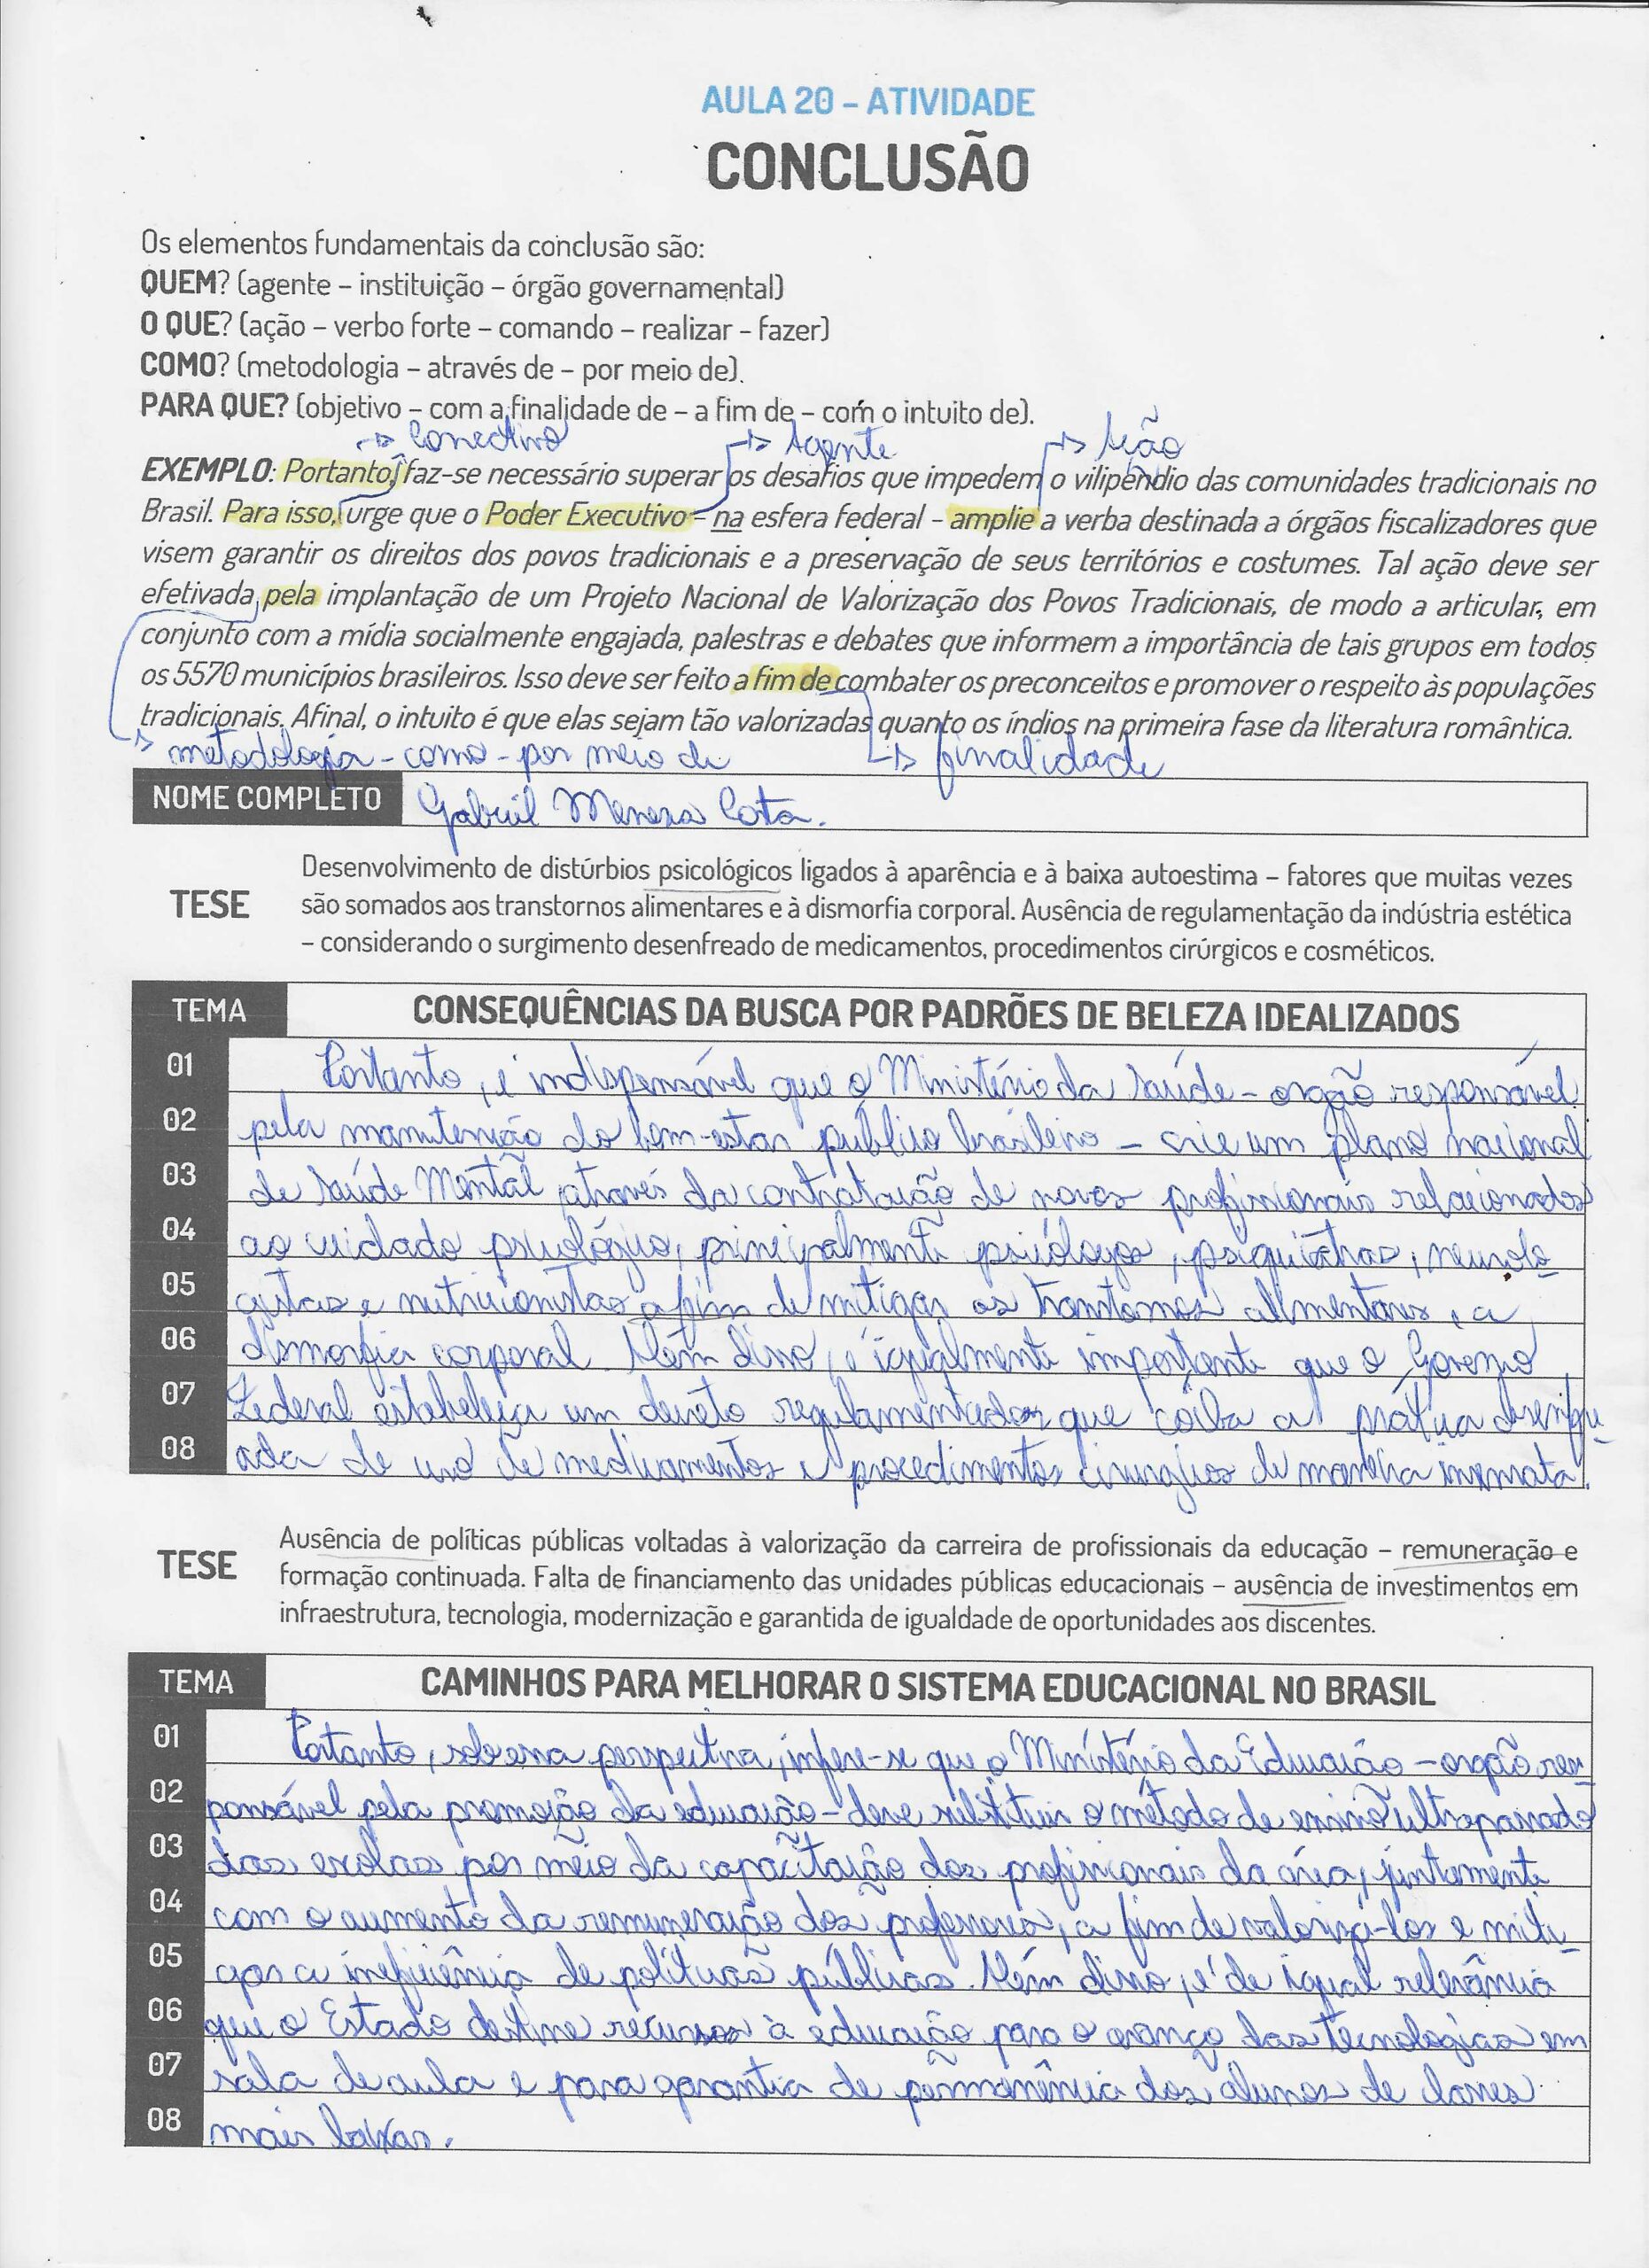 AULA 20 – ATIVIDADE
CONCLUSÃO
Os elementos fundamentais da conclusão são:
QUEM? (agente – instituição – órgão governamental)
O QUE? (ação – verbo forte – comando – realizar – fazer)
COMO? (metodologia – através de – por meio de).
PARA QUE? (objetivo – com a finalidade de – a fim de – com o intuito de).
Conectivo Agente Ação
EXEMPLO: Portanto, faz-se necessário superar os desafios que impedem o vilipêndio das comunidades tradicionais no
Brasil. Para isso, urge que o Poder Executivo – na esfera federal – amplie a verba destinada a órgãos fiscalizadores que
visem garantir os direitos dos povos tradicionais e a preservação de seus territórios e costumes. Tal ação deve ser
efetivada pela implantação de um Projeto Nacional de Valorização dos Povos Tradicionais, de modo a articular, em
conjunto com a mídia socialmente engajada, palestras e debates que informem a importância de tais grupos em todos
os 5570 municípios brasileiros. Isso deve ser feito a fim de combater os preconceitos e promover o respeito às populações
tradicionais. Afinal, o intuito é que elas sejam tão valorizadas quanto os índios na primeira fase da literatura romântica.
metodologia - como - por meio de finalidade
NOME COMPLETO Gabriel Meneza Cota.
TESE
Desenvolvimento de distúrbios psicológicos ligados à aparência e à baixa autoestima – fatores que muitas vezes
são somados aos transtornos alimentares e à dismorfia corporal. Ausência de regulamentação da indústria estética
– considerando o surgimento desenfreado de medicamentos, procedimentos cirúrgicos e cosméticos.
TEMA CONSEQUÊNCIAS DA BUSCA POR PADRÕES DE BELEZA IDEALIZADOS
01 Portanto, é indispensável que o Ministério da Saúde - orgão responsável
02 pela manutenção do bem-estar público brasileiro - crie um plano nacional
03 de Saúde Mental através da contratação de novos profissionais relacionados
04 ao cuidado psicológico, principalmente psicólogos, psiquiatras, neurolo
05 gistas e nutricionistas a fim de mitigar os transtornos alimentares e a
06 dismorfia corporal. Além disso, é igualmente importante que o Governo
07 Federal estabeleça um decreto regulamentador que coíba a prática desenfre-
08 ada de uso de medicamentos e procedimentos cirurgicos de maneira inexata.
TESE
Ausência de políticas públicas voltadas à valorização da carreira de profissionais da educação – remuneração e
formação continuada. Falta de financiamento das unidades públicas educacionais – ausência de investimentos em
infraestrutura, tecnologia, modernização e garantida de igualdade de oportunidades aos discentes.
TEMA CAMINHOS PARA MELHORAR O SISTEMA EDUCACIONAL NO BRASIL
01 Portanto, sob essa perspectiva, infere-se que o Ministério da Educação - orgão res-
02 ponsável pela promoção da educação - deve substituir o método de ensino ultrapassado
03 das escolas por meio da capacitação dos profissionais da área, juntamente
04 com o aumento da remuneração dos professores, a fim de valorizá-los e miti-
05 gar a ineficiência de políticas públicas. Além disso, é de igual relevância
06 que o Estado destine recursos à educação para o avanço das tecnologias em
07 sala de aula e para garantia de permanência dos alunos de classes
08 mais baixas.